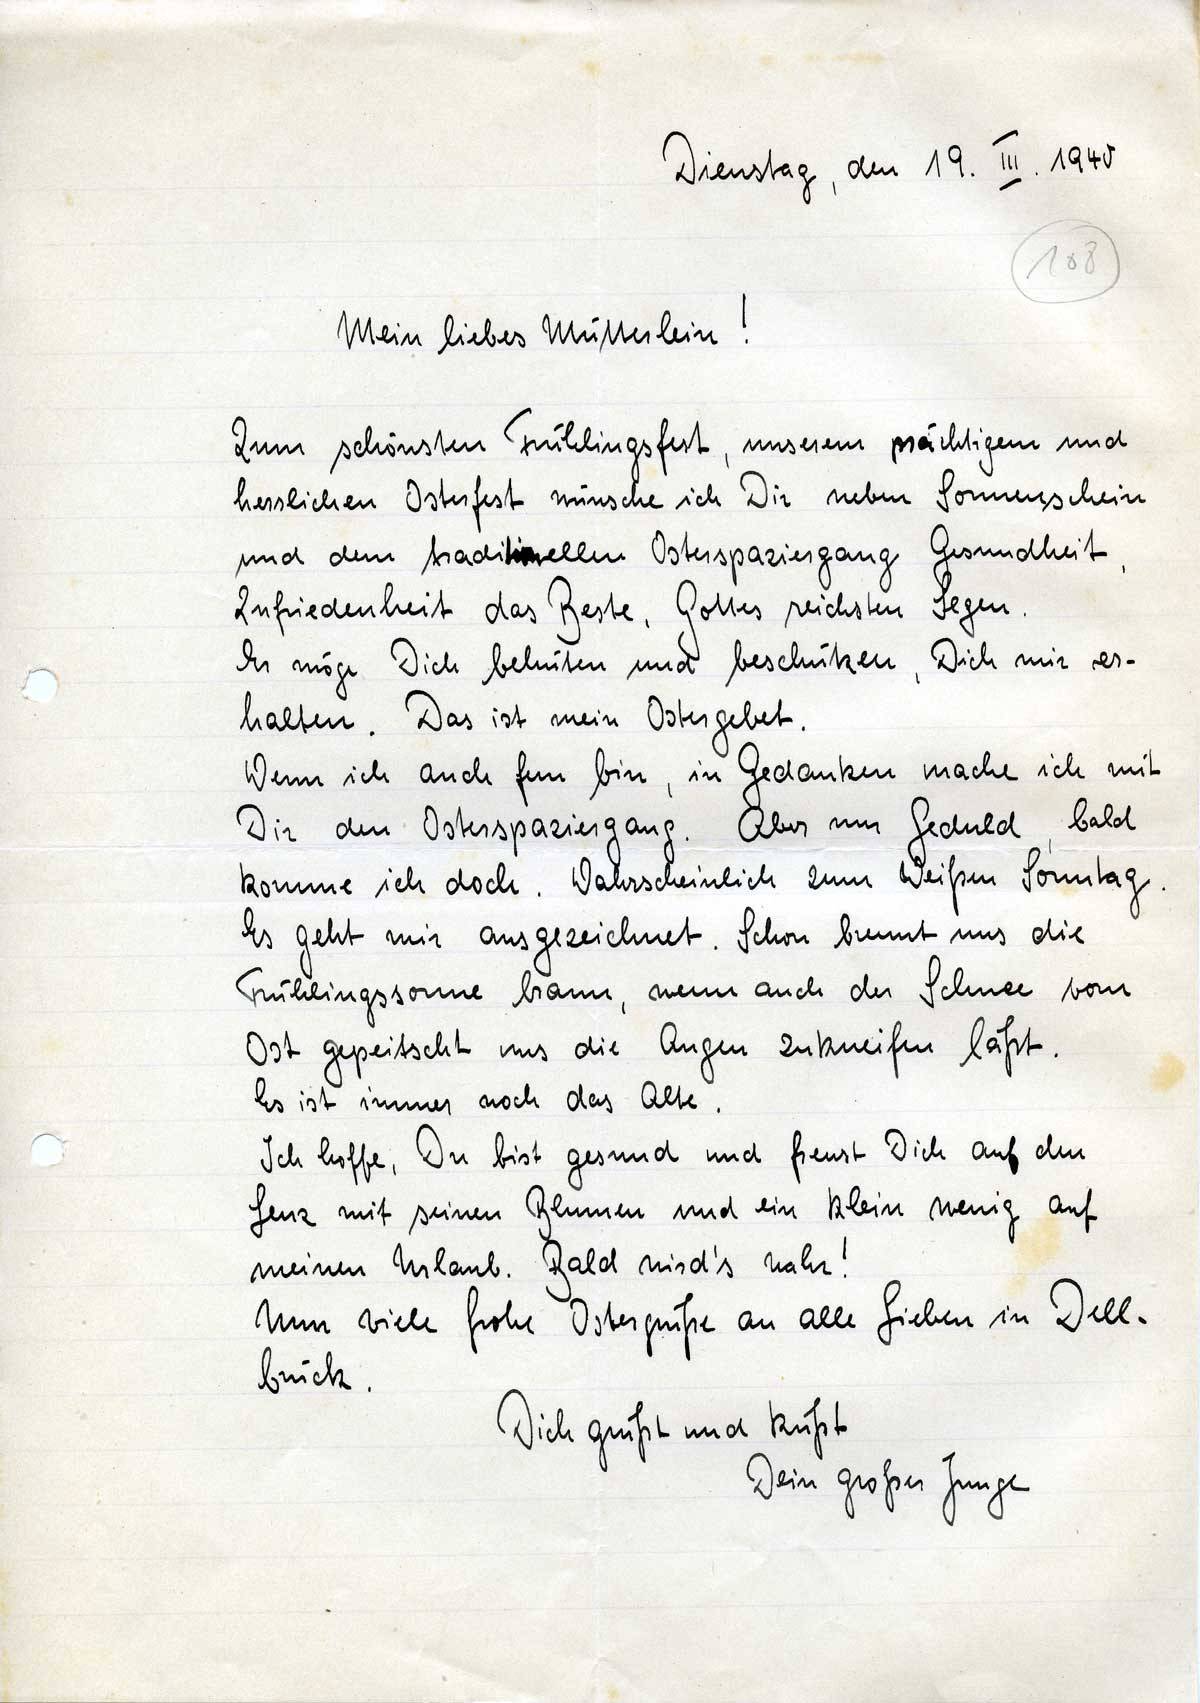 Dienstag, den 19. III. 1940
108
Mein liebes Mütterlein!
Zum schönsten Frühlingsfest, unserem prächtigem und
herrlichen Osterfest wünsche ich Dir neben Sonnenschein
und dem traditionellen Osterspaziergang Gesundheit,
Zufriedenheit das Beste, Gottes reichsten Segen.
Er möge Dich behüten und beschützen, Dich mir er-
halten. Das ist mein Ostergebet.
Wenn ich auch fern bin, in Gedanken mache ich mit
Dir den Osterspaziergang. Aber nur Geduld, bald
komme ich doch. Wahrscheinlich zum Weißen Sonntag.
Es geht mir ausgezeichnet. Schon brennt uns die
Frühlingssonne braun, wenn auch der Schnee vom
Ost gepeitscht uns die Augen zukneifen läßt.
Es ist immer noch das Alte.
Ich hoffe, Du bist gesund und freust Dich auf den
Lenz mit seinen Blumen und ein klein wenig auf
meinen Urlaub. Bald wird's wahr!
Nun viele frohe Ostergrüße an alle Lieben in Dell-
brück.
Dich grüßt und küßt
Dein großer Junge